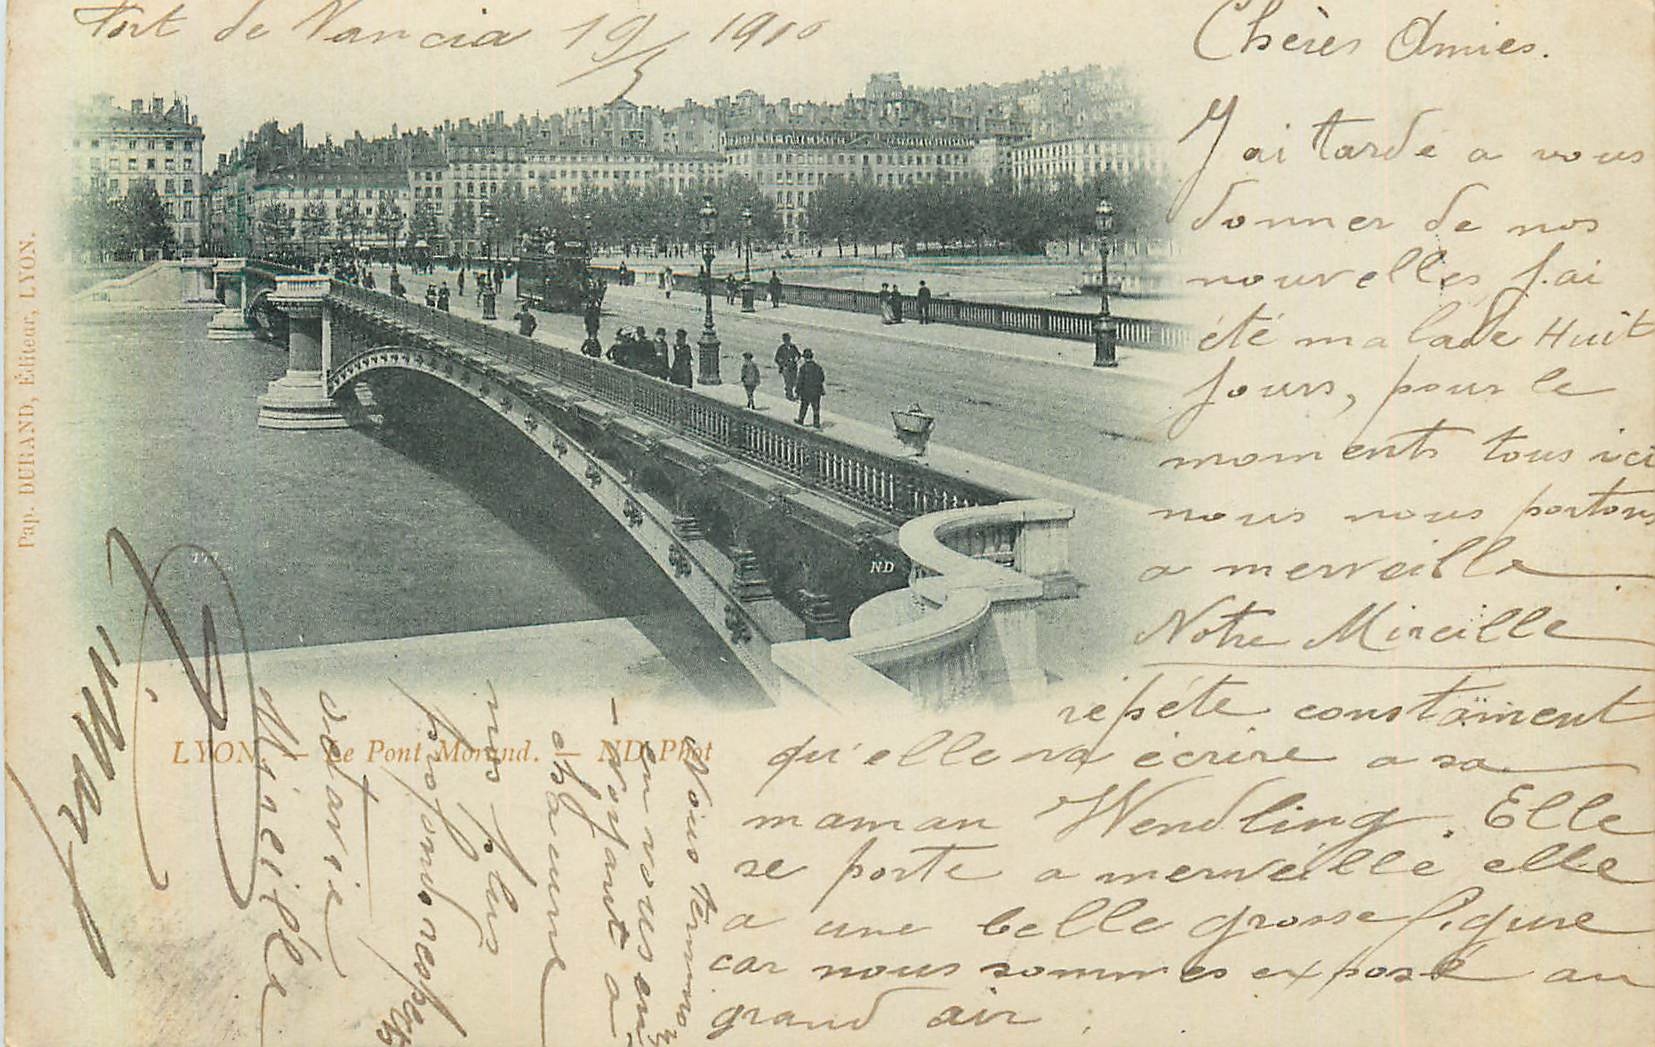 Fort de Vancia 19/5 1900
Chères Amies.
J'ai tardé a vous
donner de nos
nouvelles j.ai
été malade Huit
jours, pour le
moments tous ici
nous nous portons
a merveille
Notre Mireille
répéte constament
qu'elle va écrire a sa
maman Wendling. Elle
se porte a merveille elle
a une belle grosse figure
car nous sommes exposé au
grand air
Nous
en vous en
- voyant a
chacune
nos plus
profonds respects
octavie
Mireille
Pap. DURAND, Éditeur, LYON.
ND
LYON. — Le Pont Morand. — ND Phot